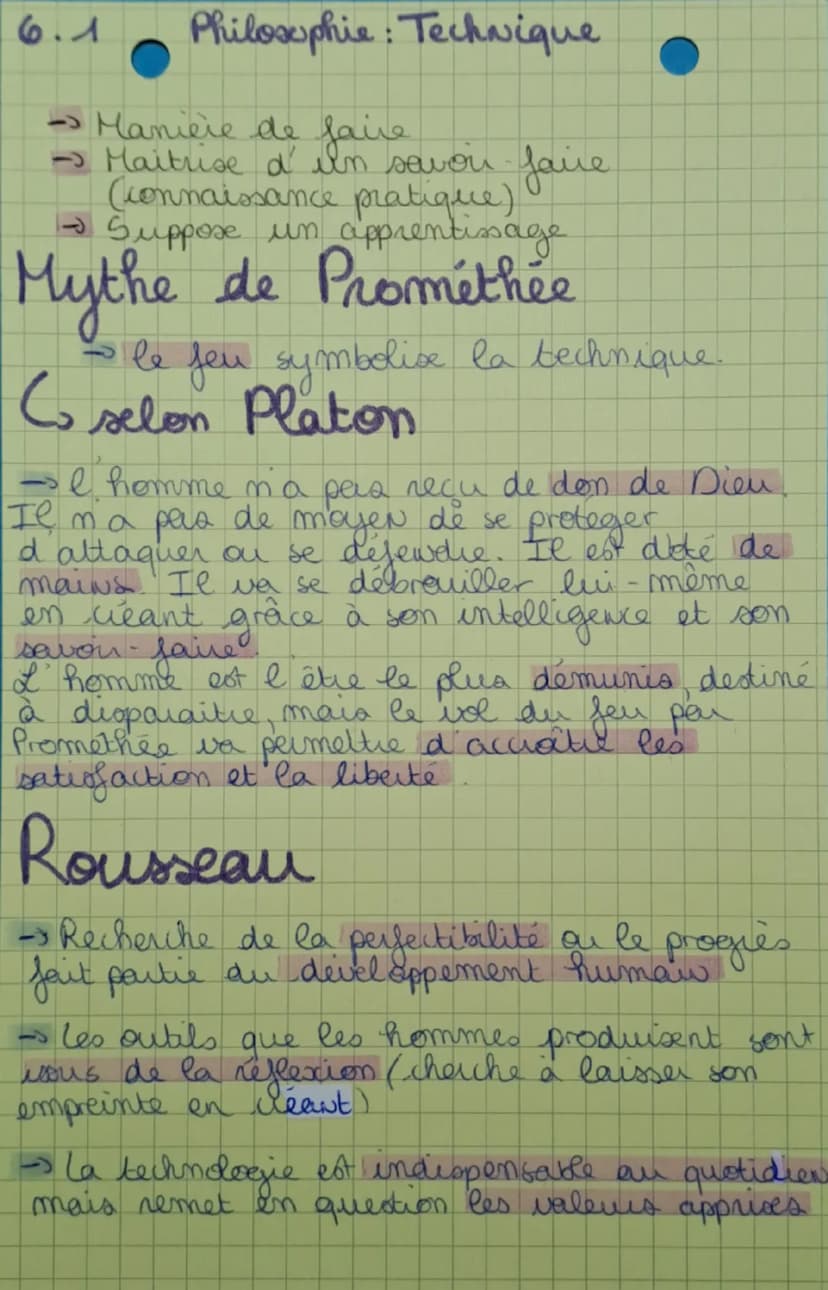 6.1 Philosophie : Technique
→ Manière de faire
→ Maitrise d'un savoir-faire
(connaissance pratique)
→ Suppose un apprentissage
Mythe de Prométhée
→ le feu symbolise la technique.
↳ selon Platon
→ l'homme n'a pas reçu de don de Dieu.
Il n'a pas de moyen de se proteger
d'attaquer ou se défendre. Il est doté de
mains. Il va se débrouiller lui-même
en créant grâce à son intelligence et son
savoir-faire.
L'homme est l'être le plus démunis, destiné
à disparaitre, mais le vol du feu par
Promethée va permettre d'accroître les
satisfaction et la liberté.
Rousseau
→ Recherche de la perfectibilité ou le progrès
fait partie du développement humain
→ Les outils que les hommes produisent sont
issus de la réflexion (cherche à laisser son
empreinte en créant)
→ La technologie est indispensable au quotidien
mais remet en question les valeurs apprises